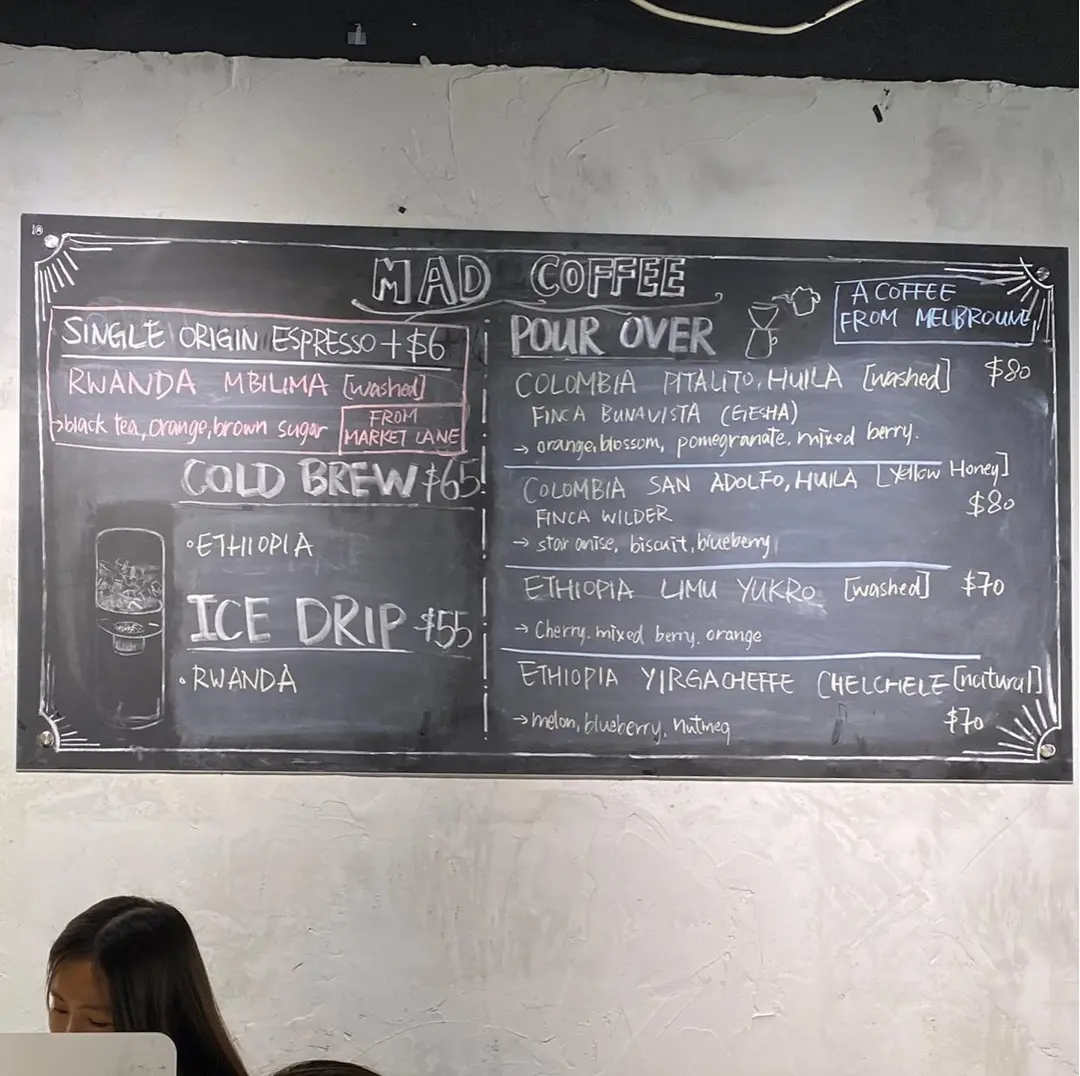 MAD COFFEE
SINGLE ORIGIN ESPRESSO +$6
RWANDA MBILIMA [washed]
→black tea, orange, brown sugar
FROM
MARKET LANE
COLD BREW $65
•ETHIOPIA
ICE DRIP $55
•RWANDA
POUR OVER
A COFFEE
FROM MELBROUNE
COLOMBIA PITALITO, HUILA [washed] $80
FINCA BUNAVISTA (GESHA)
→ orange, blossom, pomegranate, mixed berry.
COLOMBIA SAN ADOLFO, HUILA [Yellow Honey]
FINCA WILDER $80
→ star anise, biscuit, blueberry
ETHIOPIA LIMU YUKRO [washed] $70
→ Cherry, mixed berry, orange
ETHIOPIA YIRGACHEFFE CHELCHELE [natural]
→ melon, blueberry, nutmeg $70